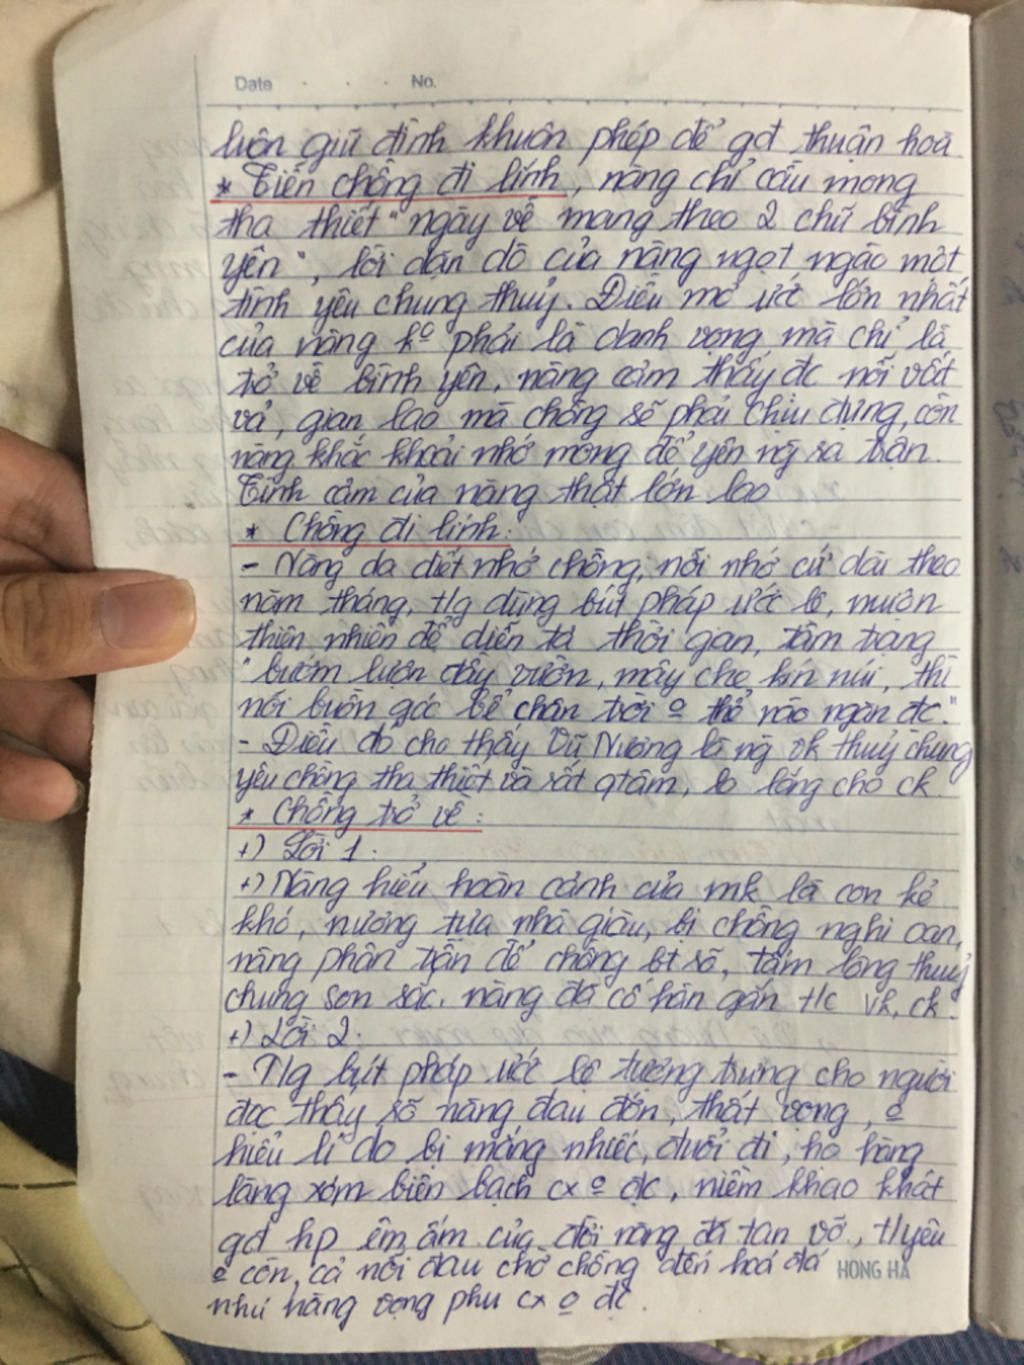 Date . . . No.
luôn giữ đình khuôn phép để gđ thuận hoà
* Tiễn chồng đi lính, nàng chỉ cầu mong
tha thiết "ngày về mang theo 2 chữ bình
yên", lời dặn dò của nàng ngọt ngào một
tình yêu chung thuỷ. Điều mơ ước lớn nhất
của nàng kº phải là danh vọng mà chỉ là
trở về bình yên, nàng cảm thấy đc nỗi vất
vả, gian lao mà chồng sẽ phải chịu đựng, còn
nàng khắc khoải nhớ mong để yên ng sa trận.
Tình cảm của nàng thật lớn lao
* Chồng đi lính:
- Nàng da diết nhớ chồng, nỗi nhớ cứ dài theo
năm tháng, t/g dụng bút pháp ước lệ, mượn
thiên nhiên để diễn tả thời gian, tâm trạng
"bướm lượn đầy vườn, mây che kín núi, thì
nỗi buồn góc bể chân trời º thể nào ngăn đc."
- Điều đó cho thấy Vũ Nương là ng vk thuỷ chung
yêu chồng tha thiết và rất qtâm, lo lắng cho ck.
* Chồng trở về:
+) Lời 1:
+) Nàng hiểu hoàn cảnh của mk là con kẻ
khó, nương tựa nhà giàu, bị chồng nghi oan,
nàng phân trần để chồng bt rõ, tấm lòng thuỷ
chung son sắc. nàng đã cố hàn gắn t/c vk, ck.
+) Lời 2:
- T/g bút pháp ước lệ tượng trưng cho người
đọc thấy rõ nàng đau đớn, thất vọng, º
hiểu lí do bị mắng nhiếc, đuổi đi, họ hàng
làng xóm biện bạch cx º đc, niềm khao khát
gđ hp êm ấm của đời nàng đã tan vỡ, t/yêu
º còn, cả nỗi đau chờ chồng đến hoá đá
HONG HA
như hàng vọng phu cx º đc.